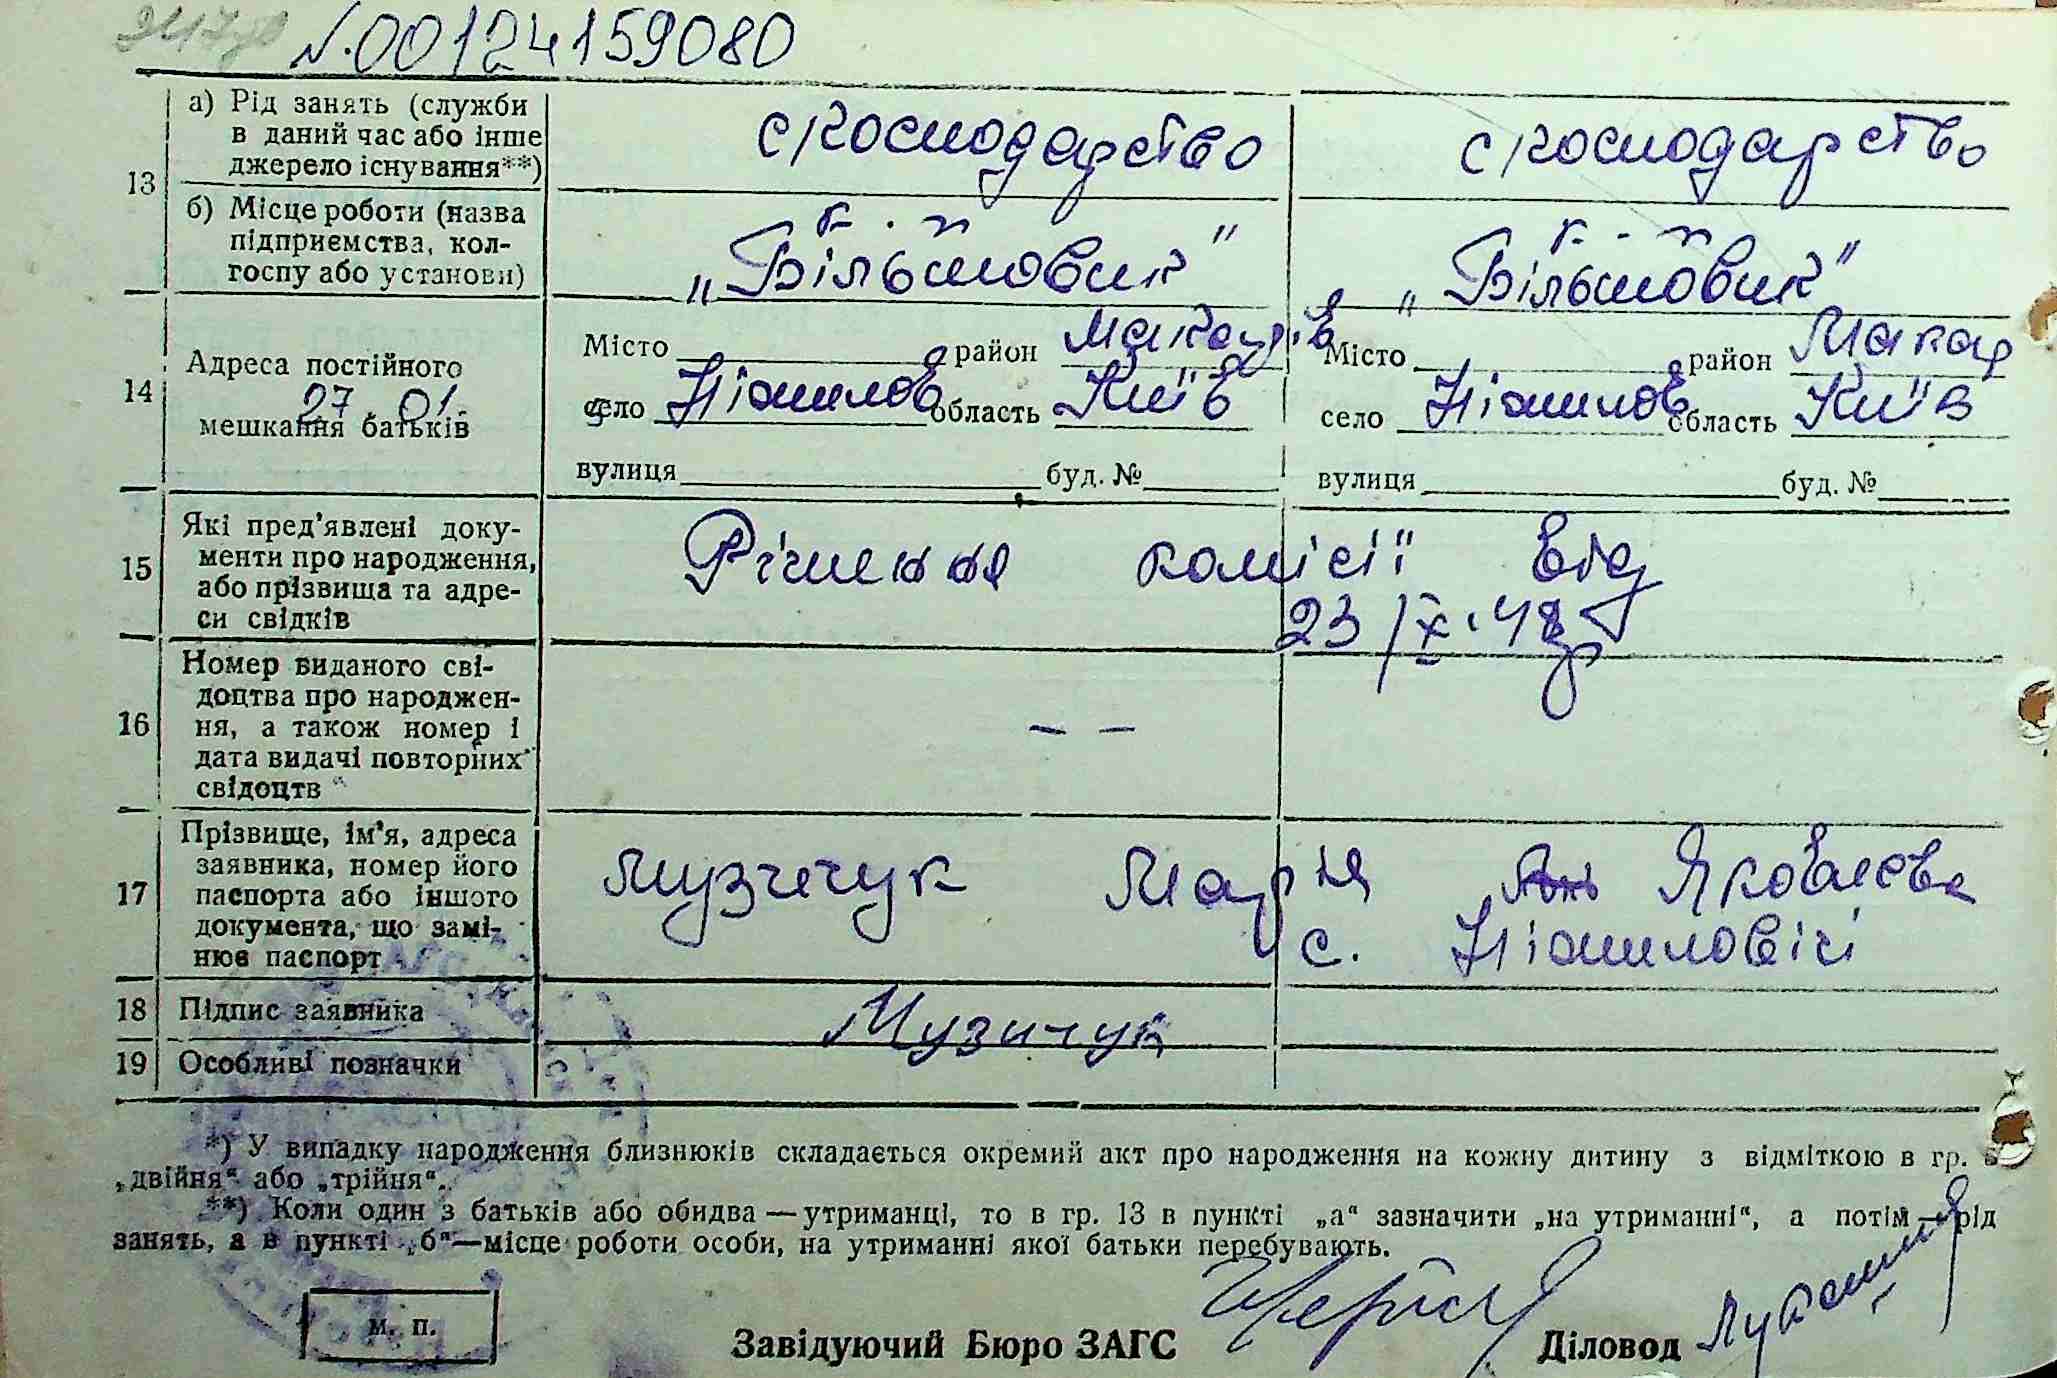 N.00124159080
13
а) Рід занять (служби
в даний час або інше
джерело існування**)
с/господарство
с/господарство
б) Місце роботи (назва
підприємства, кол-
госпу або установи)
к-п
„Більшовик"
к-п
„Більшовик"
14
Адреса постійного
27 01
мешкання батьків
Місто район Макарів
село область Київ
вулиця буд. №
Місто район Макар
село область Київ
вулиця буд. №
15
Які пред'явлені доку-
менти про народження,
або прізвища та адре-
си свідків
Рішення комісії від
23/IX.48р
16
Номер виданого сві-
доцтва про народжен-
ня, а також номер і
дата видачі повторних
свідоцтв
— —
17
Прізвище, ім'я, адреса
заявника, номер його
паспорта або іншого
документа, що замі-
нює паспорт
Музичук Марія Яковлєвна
с. Ніжиловічі
18 Підпис заявника
Музичук
19 Особливі позначки
*) У випадку народження близнюків складається окремий акт про народження на кожну дитину з відміткою в гр.
„двійня" або „трійня".
**) Коли один з батьків або обидва — утриманці, то в гр. 13 в пункті „а" зазначити „на утриманні", а потім — рід
занять, а в пункті „б"—місце роботи особи, на утриманні якої батьки перебувають.
м. п.
Завідуючий Бюро ЗАГС
Діловод